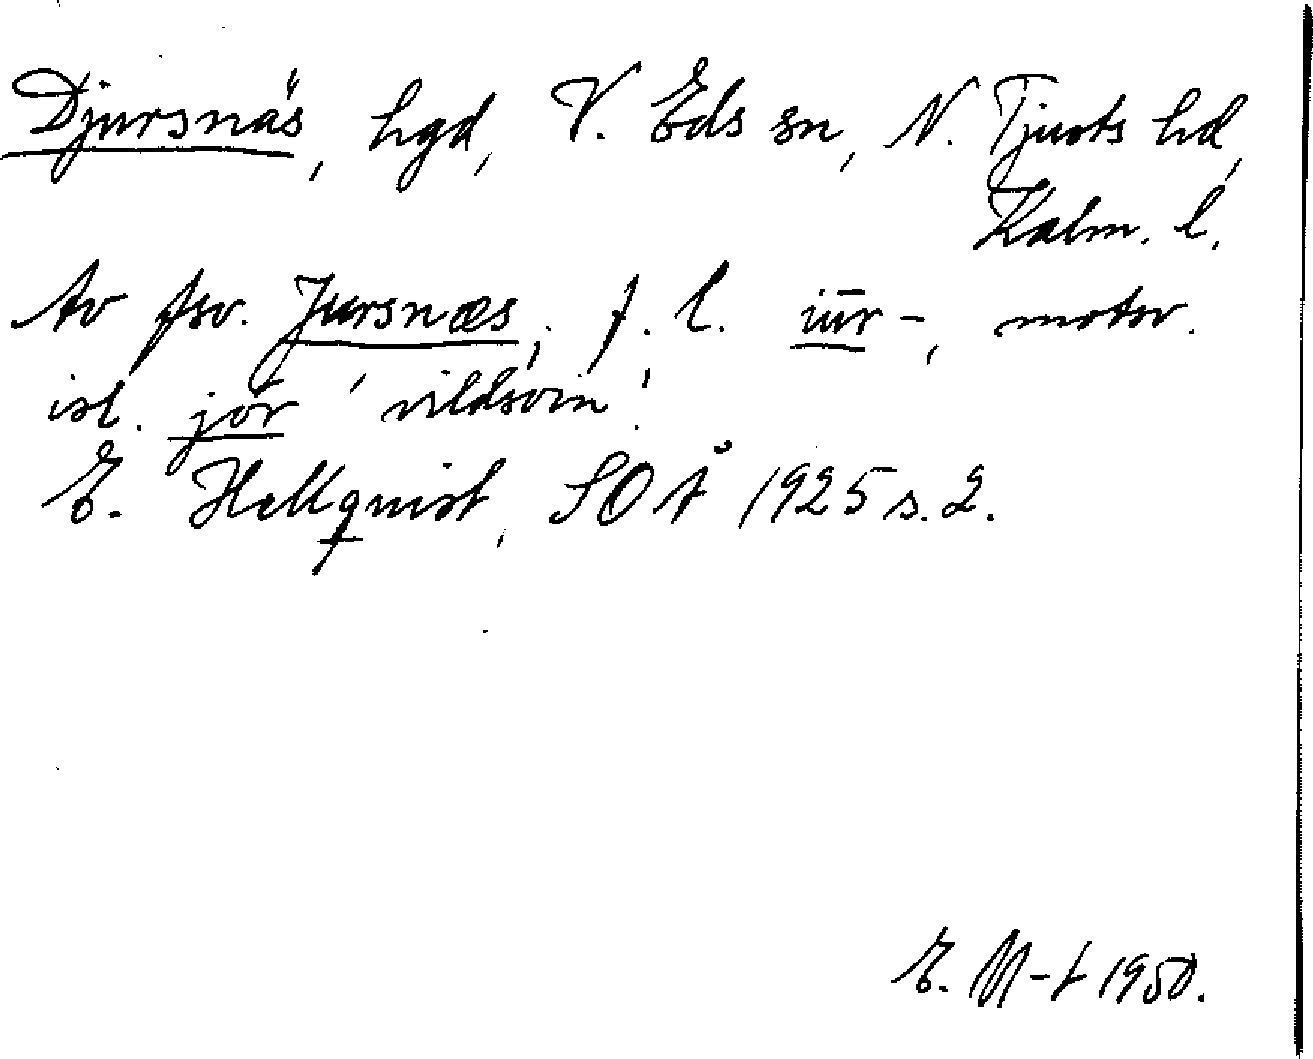 Djursnäs, hgd, V. Eds sn, N. Tjusts hd,
Kalm. l.
Av fsv. Jursnæs; f. l. iūr-, motsv.
isl. jǫr 'vildsvin'.
E. Hellquist, SOÅ 1925 s. 2.
E. N-t 1950.